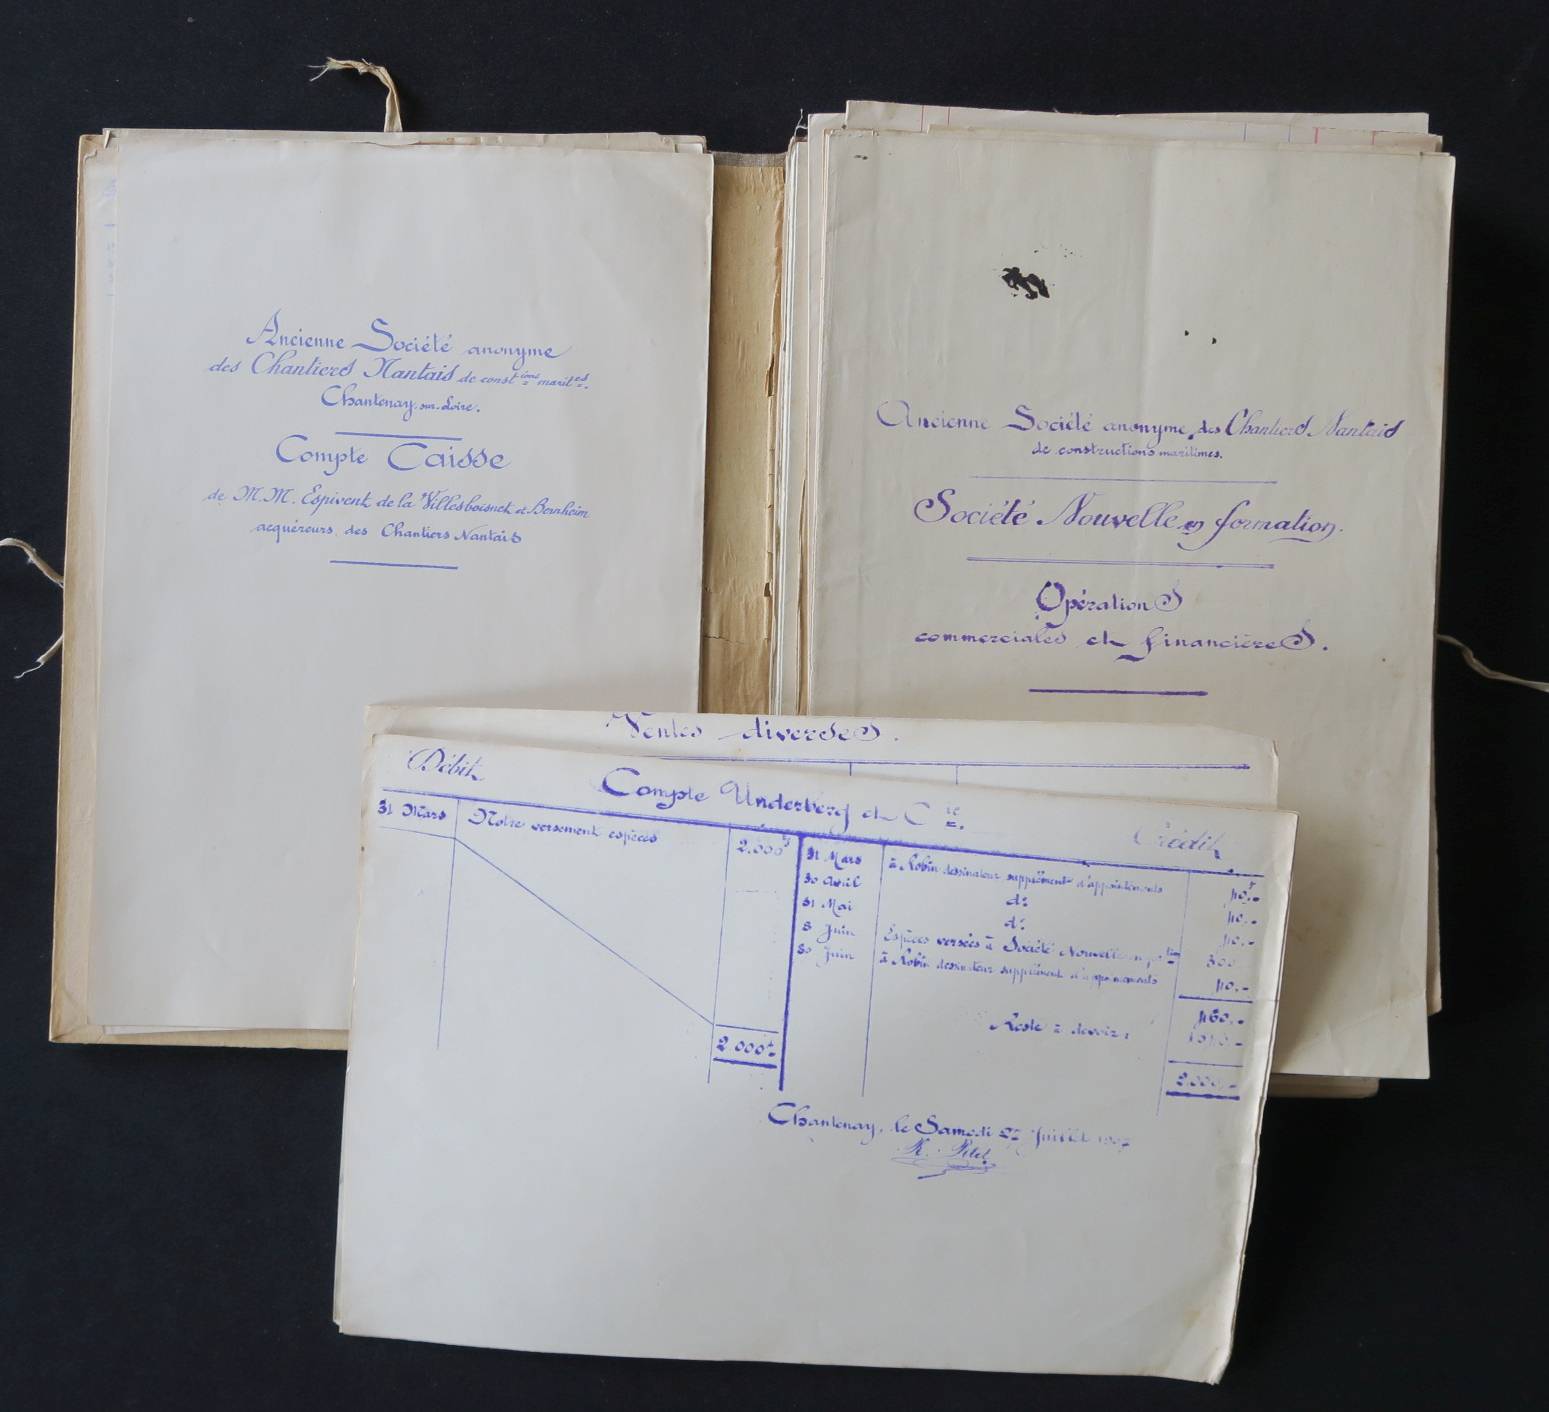 Ancienne Société anonyme
des Chantiers Nantais de const.ions marit.es
Chantenay-sur-Loire.
Compte Caisse
de M.M. Espivent de la Villesboisnet et Bernheim
acquéreurs des Chantiers Nantais
Ancienne Société anonyme des Chantiers Nantais
de constructions maritimes.
Société Nouvelle en formation.
Opérations
commerciales et financières.
Ventes diverses.
Débit Compte Underberg et Cie. Crédit
31 Mars Notre versement espèces 2.000f
31 Mars à Robin dessinateur supplément d'appointements 110.-
30 Avril do 110.-
31 Mai do 110.-
8 Juin Espèces versées à Société Nouvelle en 500
30 Juin à Robin dessinateur supplément d'appointements 110.-
Reste à devoir:
2 000f 2.000.-
Chantenay, le Samedi 27 Juillet 1907